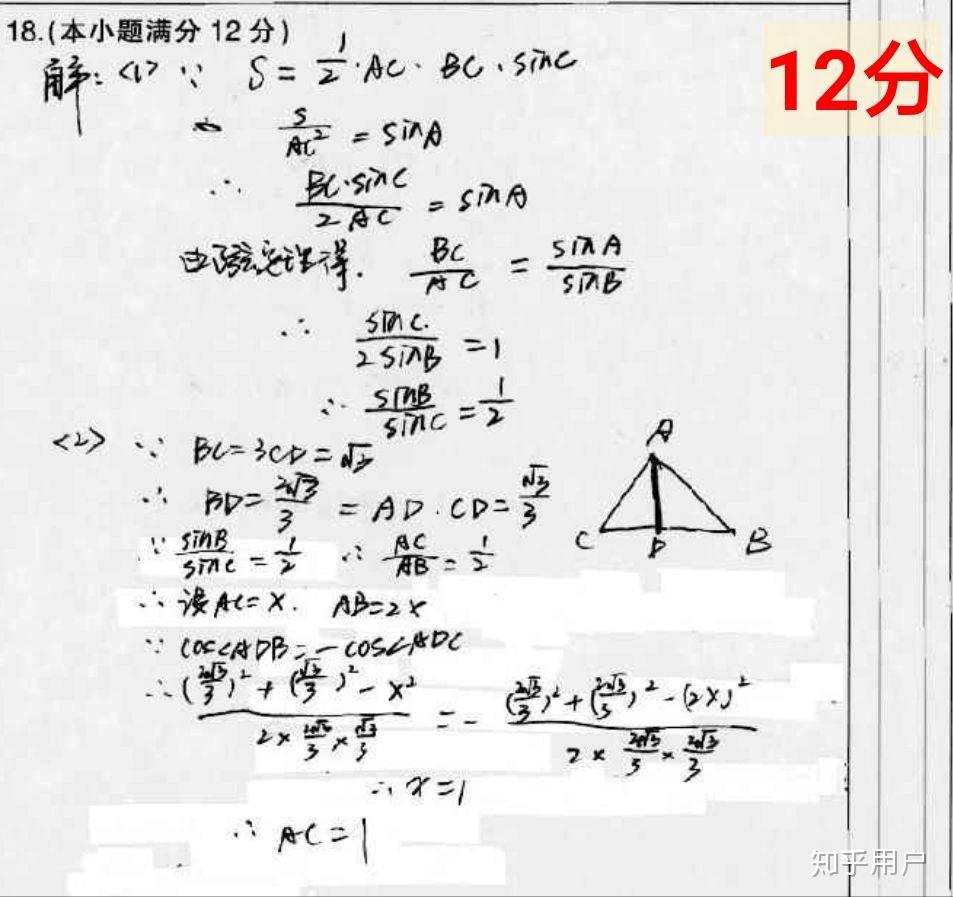 18.(本小题满分 12 分)
12分
解:<1> ∵ S = 1/2 · AC · BC · sinC
S/AC² = sinA
∴ BC·sinC/2AC = sinA
由正弦定理得. BC/AC = sinA/sinB
∴ sinC/2sinB = 1
∴ sinB/sinC = 1/2
<2> ∵ BC=3CD=√3
∴ BD= 2√3/3 = AD. CD= √3/3
∵ sinB/sinC = 1/2 ∴ AC/AB = 1/2
∴ 设AC=x. AB=2x
∵ cos∠ADB=-cos∠ADC
∴ ((2√3/3)² + (√3/3)² - x²)/(2× 2√3/3 × √3/3) = - ((2√3/3)² + (2√3/3)² - (2x)²)/(2 × 2√3/3 × 2√3/3)
∴ x=1
∴ AC=1
A
C
D
B
知乎用户